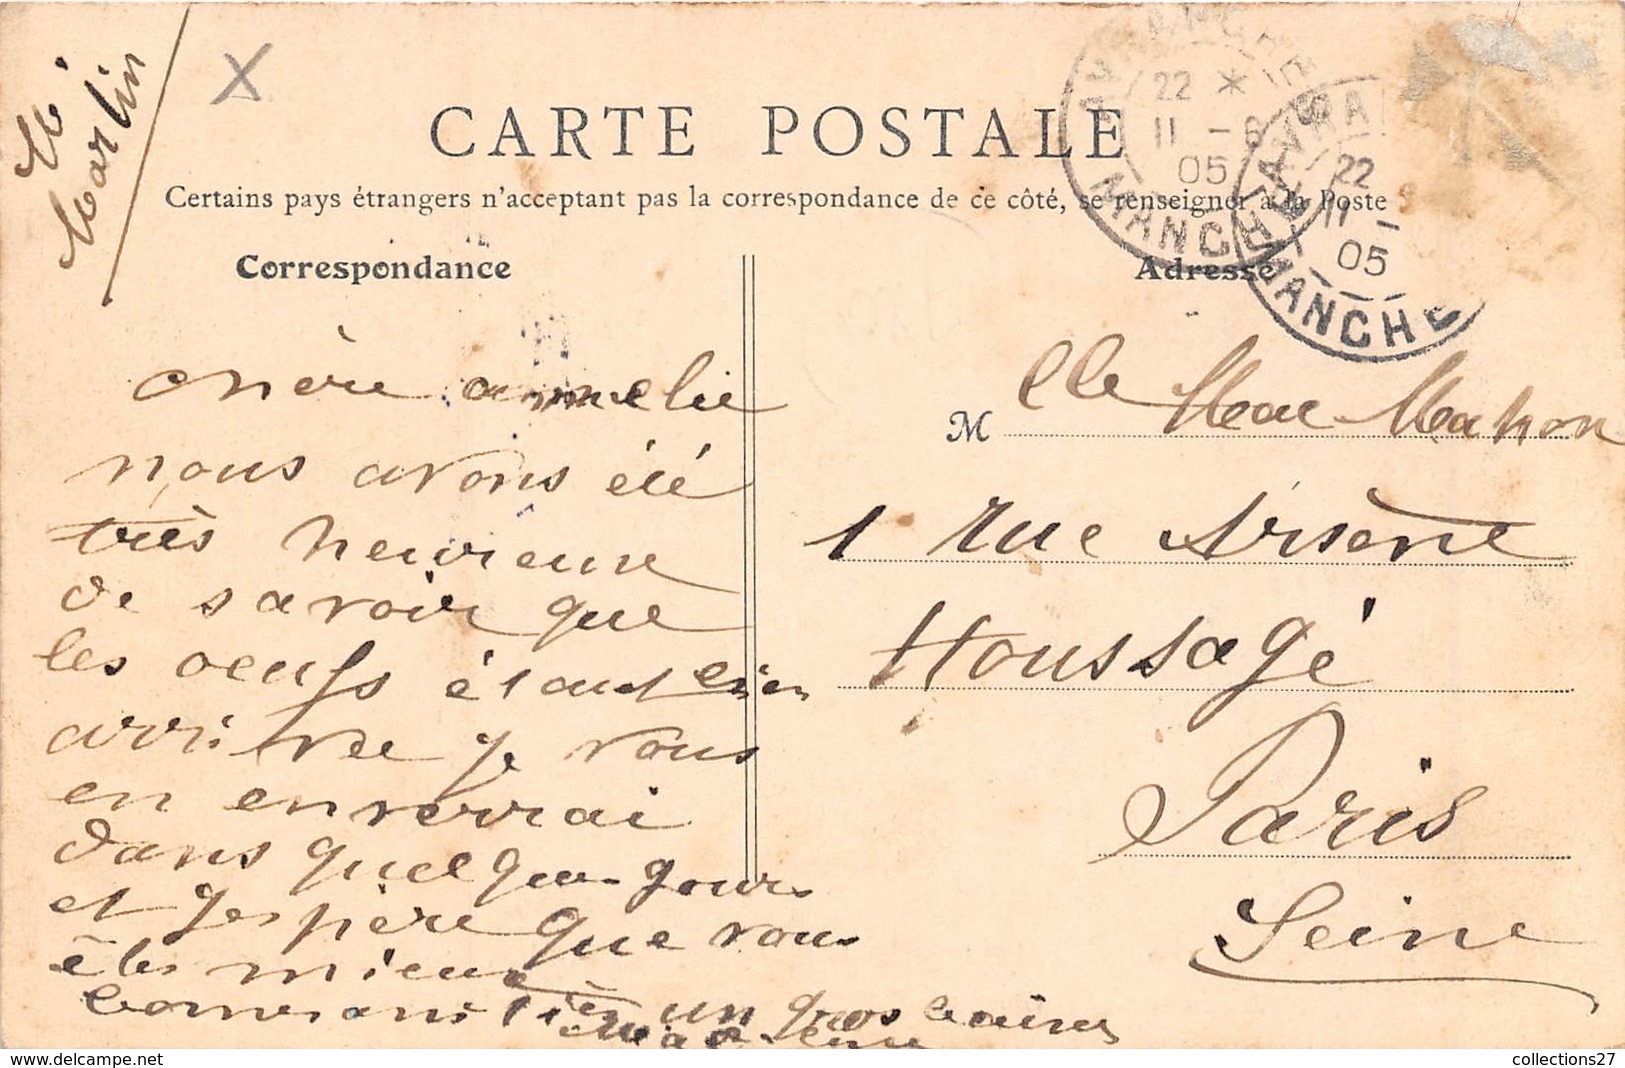 CARTE POSTALE
Certains pays étrangers n'acceptent pas la correspondance de ce côté, se renseigner à la Poste
Correspondance
Adresse
AVRANCHES
22 * 11 -6 05
MANCHE
AVRA
22 11 - 05
MANCHE
Martin
chère amelie
nous avons été
très heureuse
de savoir que
les oeufs étant bien
arrivée je vous
en enverrai
dans quelque jours
et jespère que vous
êtes mieux
un gros baiser
M lle Mac Mahon
1 rue Arsène
Houssaye
Paris
Seine
collections27